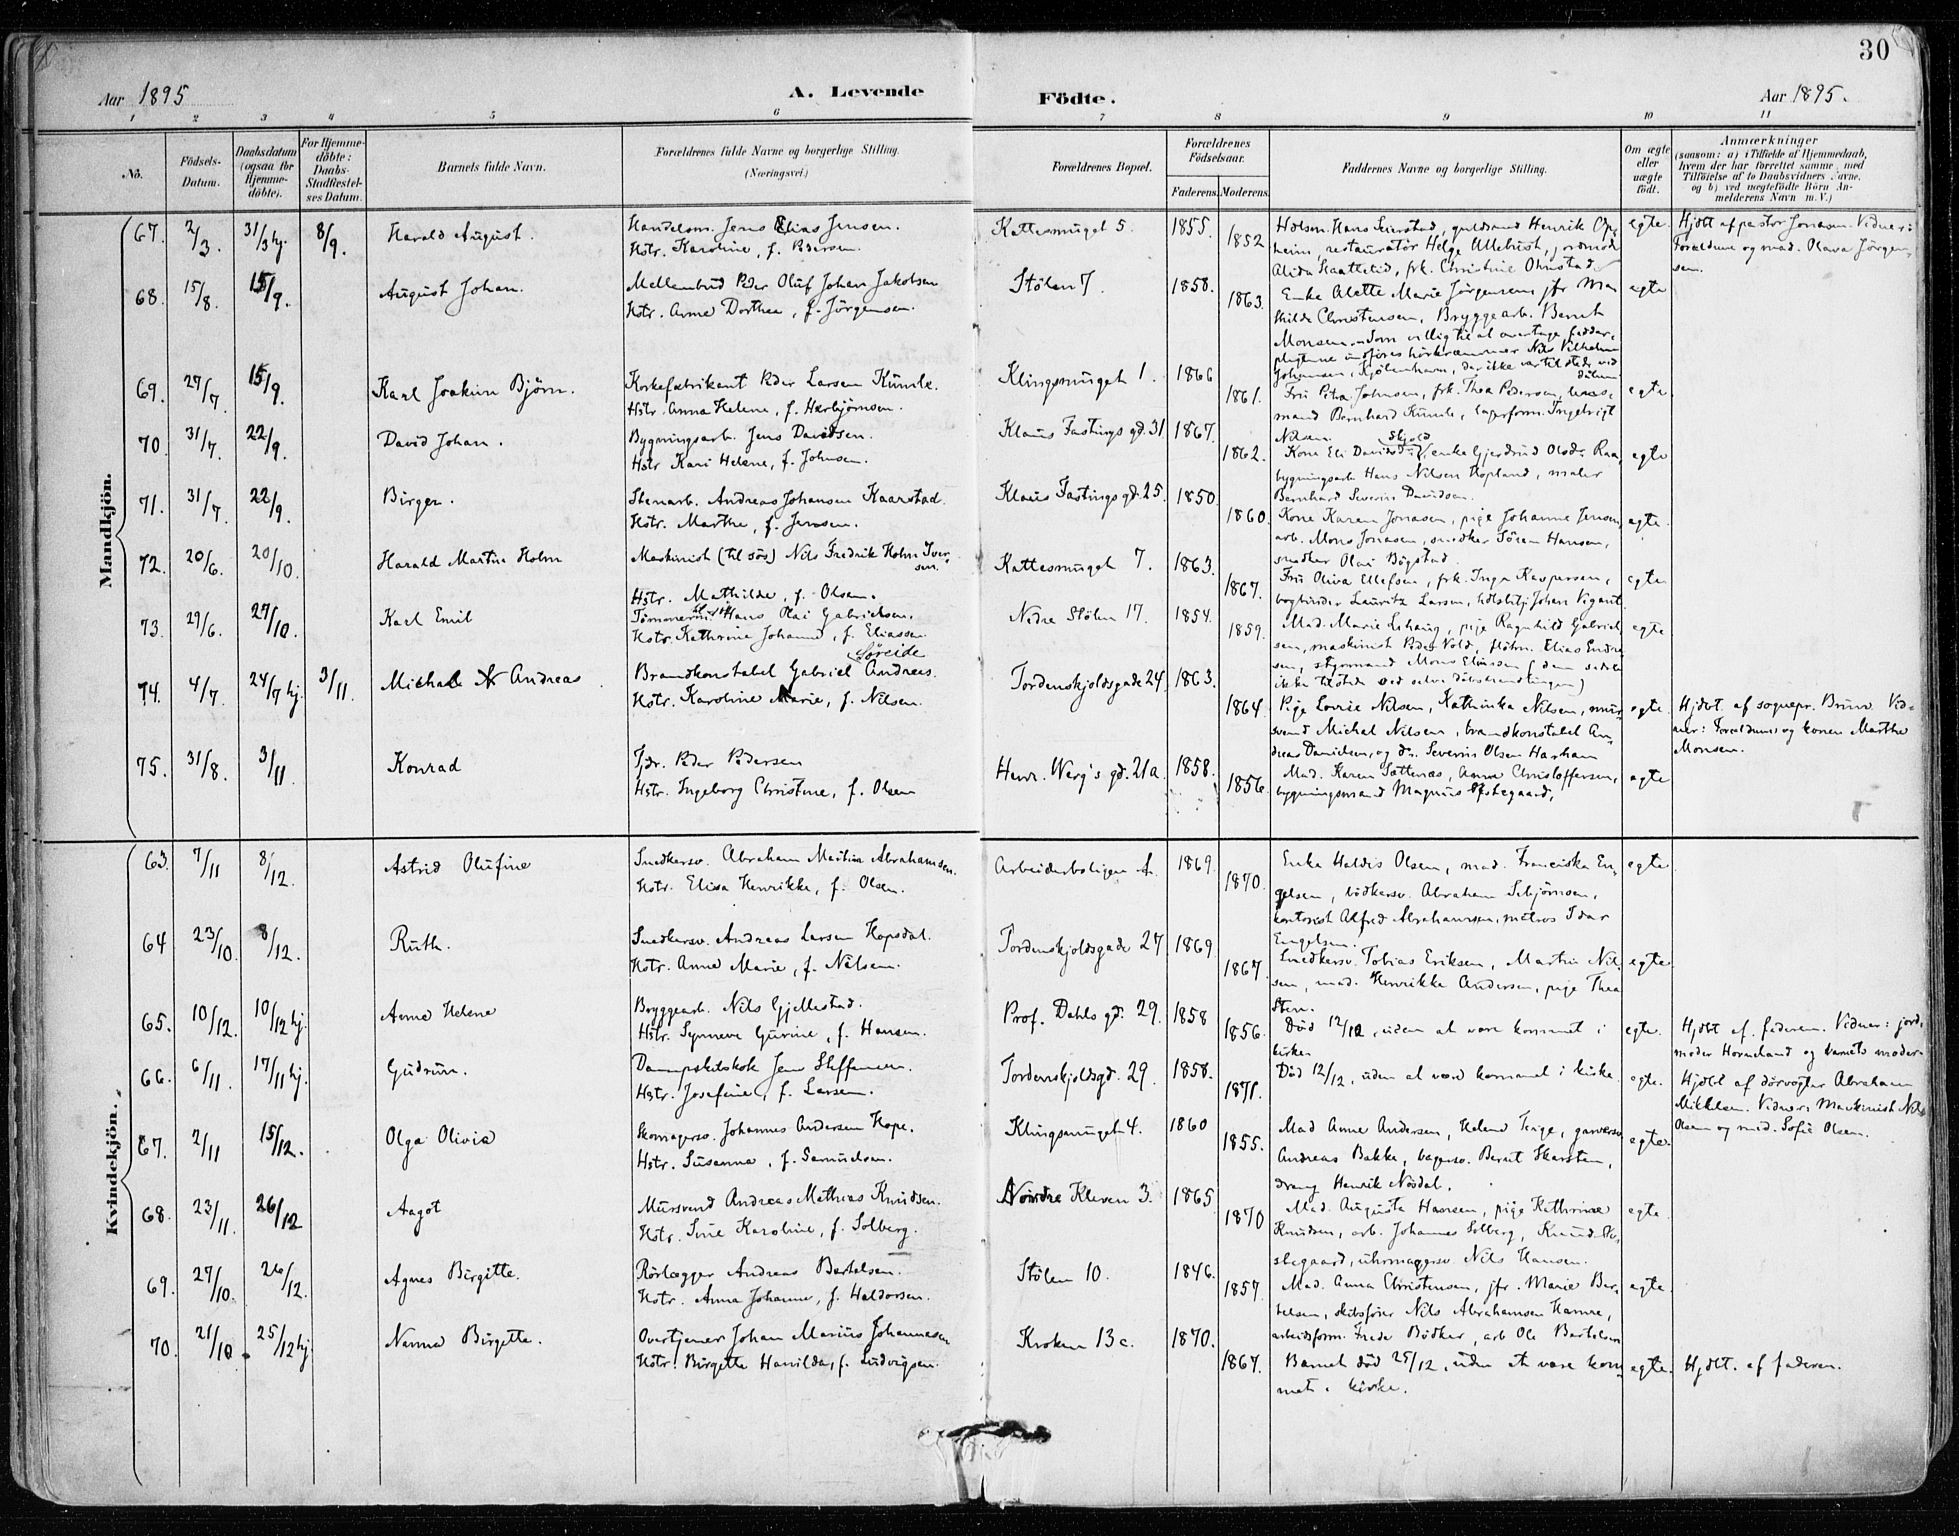 30
Aar 1895
A. Levende
Födte.
Aar 1895.
1 2 3 4 5 6 7 8 9 10 11
No.
Födsels-Datum.
Daabsdatum (ogsaa for Hjemme-döbte).
For Hjemme-döbte: Daabs-Stadfæstel-ses Datum.
Barnets fulde Navn.
Forældrenes fulde Navne og borgerlige Stilling.
(Næringsvei.)
Forældrenes Bopæl.
Forældrenes Födselsaar.
Faderens. Moderens.
Faddernes Navne og borgerlige Stilling.
Om ægte eller uægte födt.
Anmærkninger
(saasom: a) i Tilfælde af Hjemmedaab,
hvem der har forrettet samme med
Tilföielse af to Daabsvidners Navne,
og b) ved uægtefödte Börn An-
melderens Navn m. V.)
Mandkjön.
67. 2/3. 31/3 hj. 8/9. Harald August. Handelsm. Jens Elias Jensen.
Hstr. Karoline, f. Pedersen.
Kattesmuget 5. 1855. 1852
heim, restauratör Helge Ullebust, jordmod.
frk. Christine Ohnstad
egte.
Hjdbt af pastor Jonassen. Vidner:
Forældrene og mad. Olava Jörgen-
sen.
68. 15/8. 15/9. August Johan. Mellembud Peder Oluf Johan Jakobsen
Hstr. Anne Dorthea, f. Jörgensen.
Stölen 7. 1858. 1863.
Enke Alette Marie Jörgensen, jfr Ma
thilde Christensen, Bryggearb. Bernt
Monsen. Som villig til at overtage fadder-
pligtene indföres hörkræmmer Nils Vilhelm
Johansen, Kjöbenhavn, der ikke var tilstede ved
dåben
egte
69. 27/7. 15/9. Karl Joakim Björn. Korkefabrikant Peder Larsen Künle.
Hstr. Anna Helene, f. Herbjörnsen.
Klingsmuget 1. 1866 1861.
Fru Petra Johnsen, frk. Thea Pedersen,
mand Bernhard Künle, lagerform. Ingebrigt
Nilsen.
egte.
70. 31/7. 22/9. David Johan. Bygningsarb. Jens Davidsen.
Hstr Kari Helene, f. Johnsen.
Klaus Fastings gd. 31 1867. 1862.
Skjold
Kone Eli Davids. enke Gjerdrud Olsdr. Raa,
bygningsarb Hans Nilsen Hopland, maler
Bernhard Severin Davidsen.
egte
71. 31/7. 22/9. Birger. Stenarb. Andreas Johansen Kaarstad.
Hstr. Marthe, f. Jensen.
Klaus Fastings gd. 25. 1850. 1860.
Kone Karen Jonasen, pige Johanne Jensen,
arb. Mons Jonasen, snedker Sören Hansen,
snedker Olai Bögstad.
egte.
72. 20/6. 20/10. Harald Martin Holm Maskinist (til sös) Nils Fredrik Holm Iver-
sen.
Hstr. Mathilde, f. Olsen.
Kattesmuget 7. 1863. 1867.
Fru Oliva Ellefsen, frk. Inga Kaspersen,
bogbinder Lauritz Larsen, Johan Vigant.
egte.
73. 29/6. 27/10. Karl Emil Hans Olai Gabrielsen.
Hstr. Kathrine Johanne, f. Eliassen.
Nedre Stölen 17. 1854. 1859.
Mad. Marie Lehaug, pige Ragnhild Gabriel
sen, maskinist Peder Vold, Elias Endre
sen, styrmand Mons Eliassen (den sidste
ikke tilstede ved selve dåbshandlingen)
egte.
74. 4/7. 24/7 hj. 3/11. Michal Andreas Söreide
Brandkonstabel Gabriel Andreas.
Hstr. Karoline Marie, f. Nilsen.
Tordenskjoldsgade 24. 1863. 1864.
Pige Lovise Nilsen, Kathinka Nilsen, mur-
svend Michal Nilsen, brandkonstabel An-
dreas Danielsen, og do. Severin Olsen Haxham
egte.
Hjdbt. af sognepr. Bruun. Vid-
ner: Forældrene og konen Marthe
Monsen.
75. 31/8. 3/11. Konrad Tjdr. Peder Pedersen
Hstr. Ingeborg Christine, f. Olsen
Henr. Werg's gd. 21a. 1858. 1856.
Mad. Karen Sættenæs, Anna Christoffersen,
bygningsmand Magnus Östegaard,
egte
Kvindekjön.
63. 7/11 8/12. Astrid Olufine Snedkersv. Abraham Martin Abrahamsen.
Hstr. Elisa Henrikke, f. Olsen.
Arbeiderboligen A. 1869. 1870.
Enke Haldis Olsen, mad. Franciska En-
gelsen, bödkersv. Abraham Sebjörnsen,
kontorist Alfred Abrahamsen, matros Idar
Engelsen.
egte.
64 23/10. 8/12. Ruth. Snedkersv. Andreas Larsen Hopsdal.
Hstr. Anne Marie, f. Nilsen.
Tordenskjoldsgade 27 1869. 1867.
Snedkersv. Tobias Eriksen, Martin Nil-
sen, mad. Henrikke Andersen, pige Thea
Sten.
egte.
65. 10/12. 10/12 hj. Anna Helene Bryggearb. Nils Gjellestad.
Hstr. Synneve Gurine, f. Hansen.
Prof. Dahls gd. 29. 1858 1856.
Död 12/12, uden at være kommet i
kirke.
egte.
Hjdbt af faderen. Vidner: jord-
moder Horneland og barnets moder.
66. 6/11. 17/11 hj. Gudrun. Dampskibskok Jens Steffensen.
Hstr. Josefine, f. Larsen.
Tordenskjoldsgd. 29. 1858. 1871.
Död 12/12, uden at være kommet i kirke.
egte.
Hjdbt af dörvogter Abraham
Mikkelsen. Vidner: Maskinist Nils
Olsen og mad. Sofie Olsen.
67. 2/11 15/12. Olga Olivia Skomagersv. Johannes Andersen Hope.
Hstr. Susanna, f. Samuelsen.
Klingsmuget 4. 1860 1855.
Mad Anne Andersen, Helene Teige, garversv
Andreas Bakke, bagersv. Bernt Karsten,
dreng Henrik Nösdal.
egte.
68. 23/11. 26/12 Aagot Mursvend Andreas Mathias Knudsen.
Hstr. Sine Karoline, f. Solberg.
Nordre Kleven 3. 1865 1870
Mad. Augusta Hansen, pige Kathrine
Knudsen, arb. Johannes Solberg, Knud Ves-
slegaard, uhrmagersv. Nils Hansen.
egte.
69. 27/10. 26/12. Agnes Birgitte. Rörlægger Andreas Bertelsen.
Hstr. Anna Johanne, f. Haldorsen.
Stölen 10. 1846. 1857.
Mad. Anna Christensen, jfr. Marie Ber-
telsen, skibsförer Nils Abrahamsen Hamre,
arbeidsform. Frede Bödker, arb Ole Bertelsen
egte.
70. 21/10. 25/12 hj Nanna Birgitte. Overtjener Johan Marius Johannesen
Hstr. Birgitte Hanilda, f. Ludvigsen.
Kroken 13c. 1870. 1867.
Barnet död 25/12, uden at være kom-
met i kirke.
egte.
Hjdbt. af faderen.